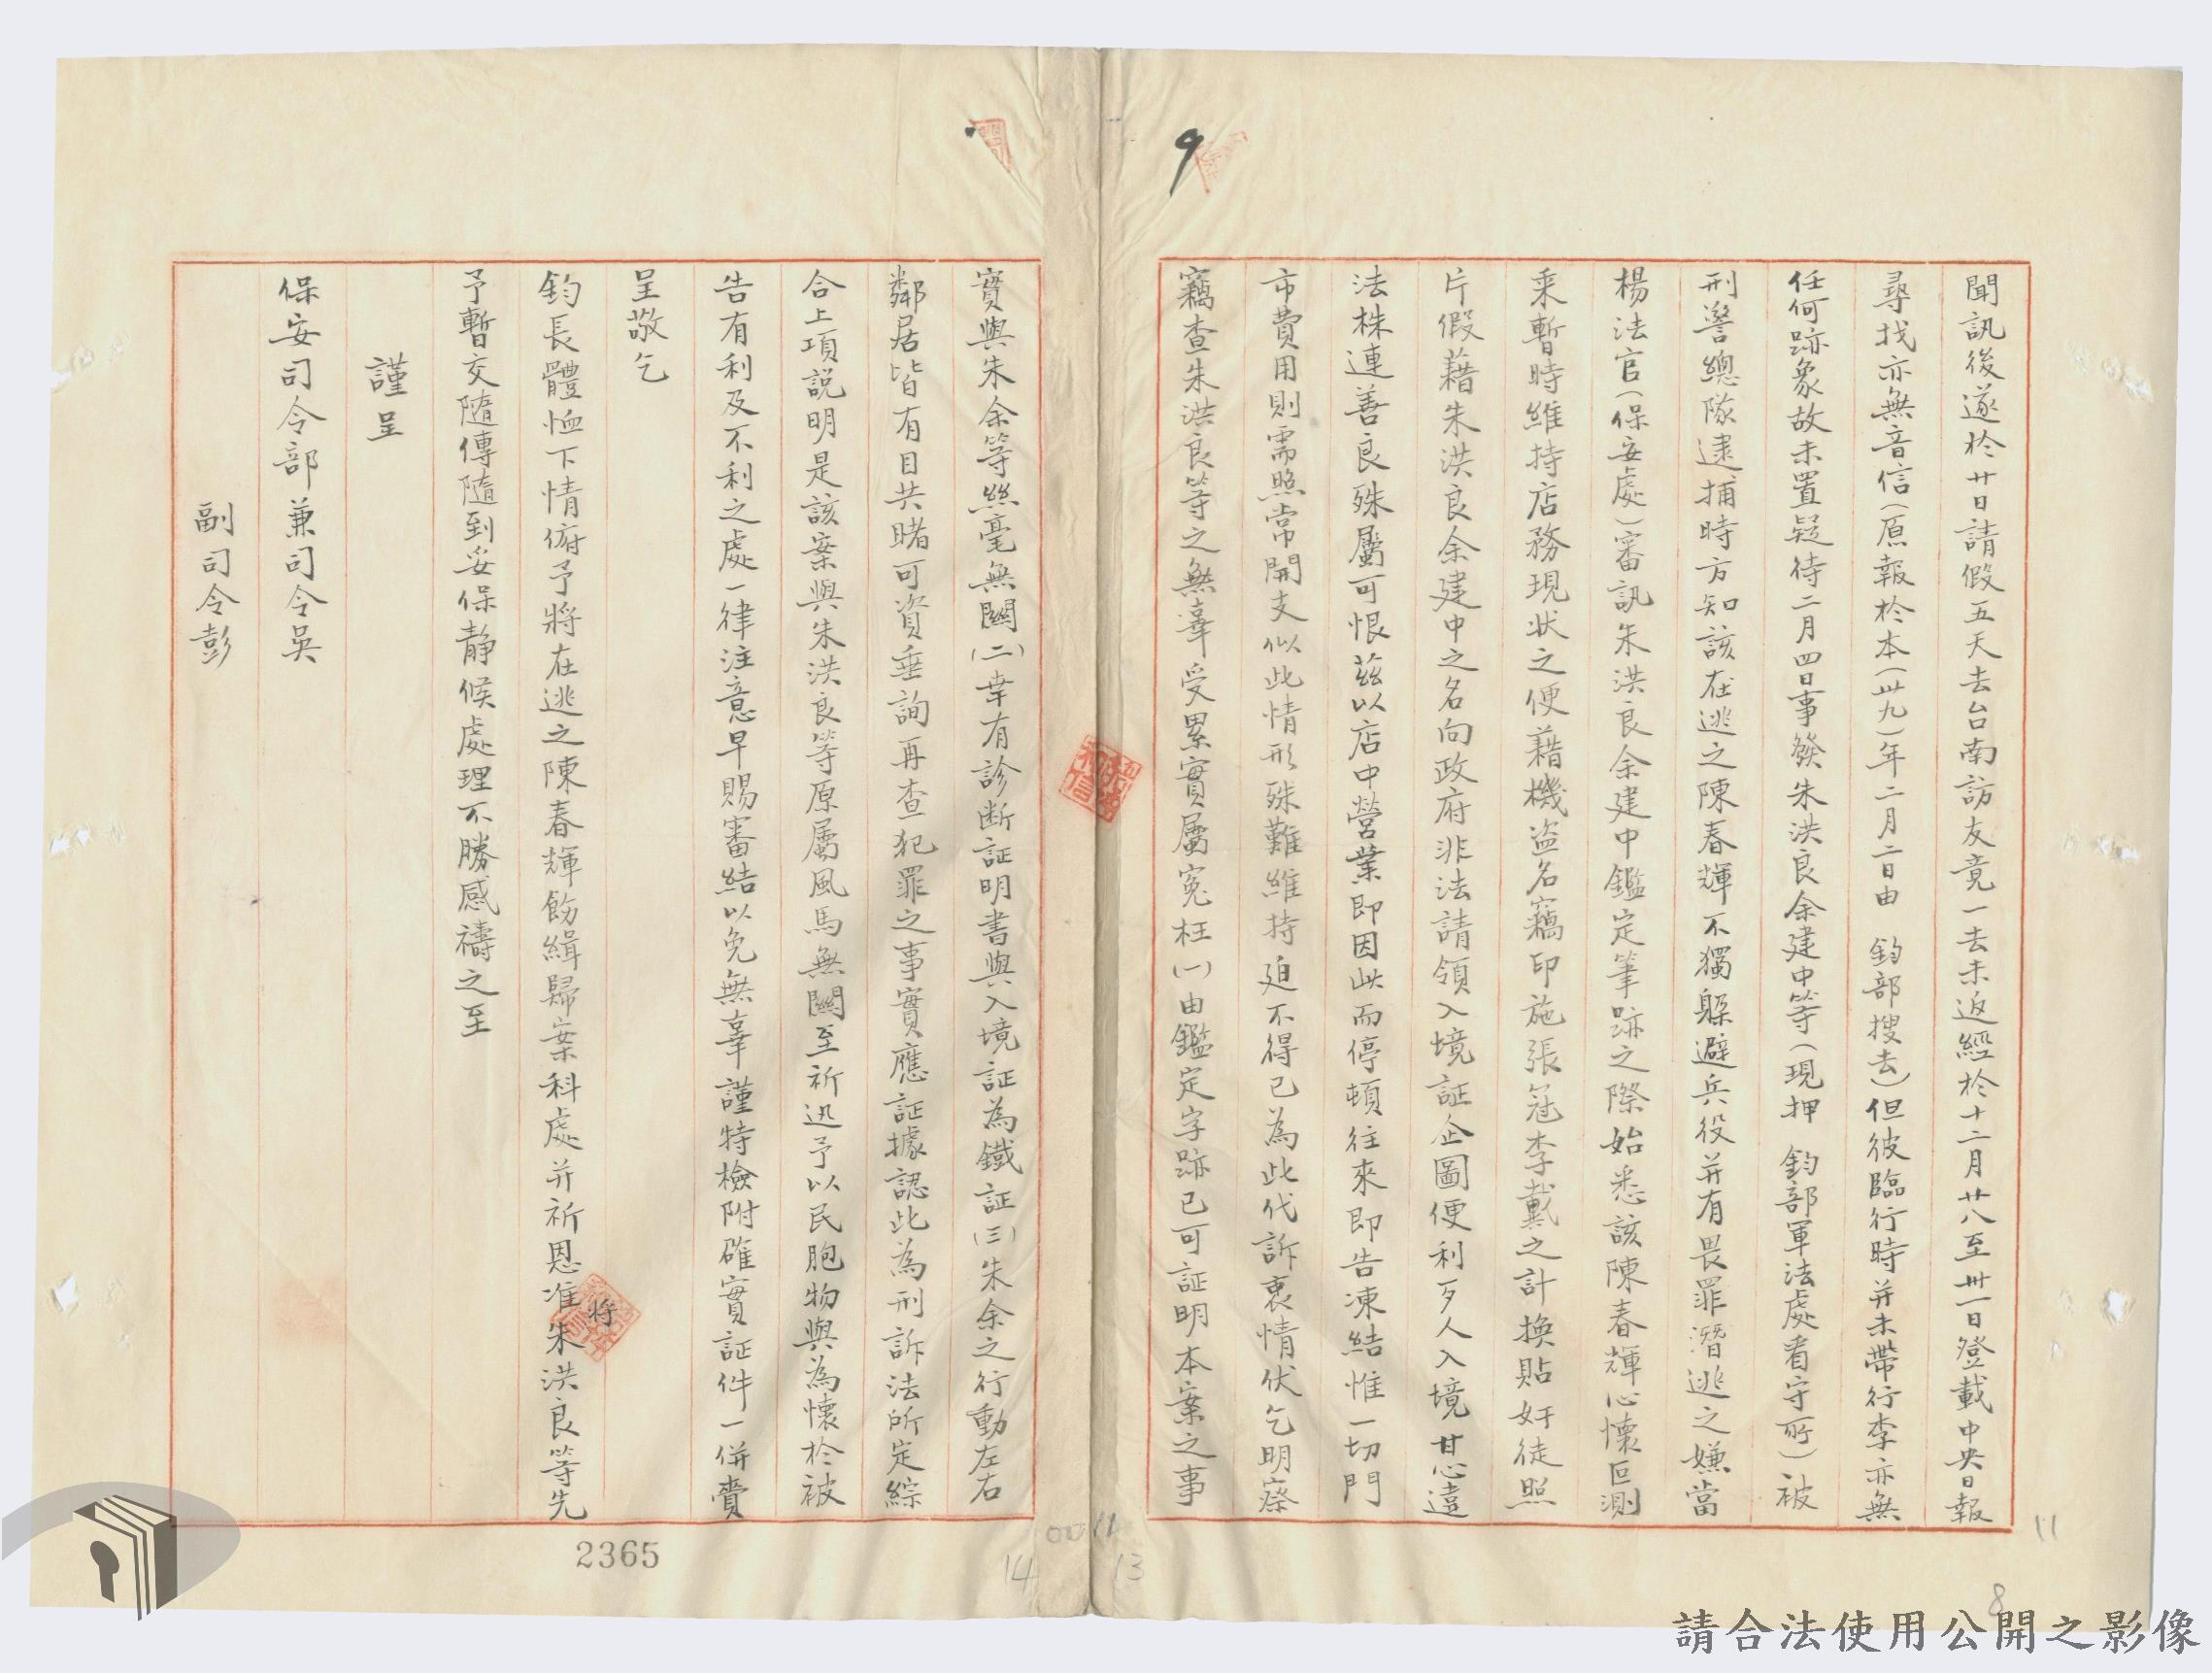 聞訊後遂於廿日請假五天去台南訪友竟一去未返經於十二月廿八至卅一日登載中央日報
尋找亦無音信(原報於本(卅九)年二月二日由 鈞部搜去)但彼臨行時并未帶行李亦無
任何跡象故未置疑待二月四日事發朱洪良余建中等(現押 鈞部軍法處看守所)被
刑警總隊逮捕時方知該在逃之陳春輝不獨躲避兵役并有畏罪潛逃之嫌當
楊法官(保安處)審訊朱洪良余建中鑑定筆跡之際始悉該陳春輝心懷叵測
乘暫時維持店務現狀之便藉機盜名竊印施張冠李戴之計換貼奸徒照
片假藉朱洪良余建中之名向政府非法請領入境証企圖便利歹人入境甘心違
法株連善良殊屬可恨茲以店中營業即因此而停頓往來即告凍結惟一切門
市費用則需照常開支似此情形殊難維持廹不得已為此代訴衷情伏乞明察
竊查朱洪良等之無辜受累實屬寃枉(一)由鑑定字跡已可証明本案之事
實與朱余等絲毫無關(二)幸有診断証明書與入境証為鐵証(三)朱余之行動左右
鄰居皆有目共睹可資垂詢再查犯罪之事實應証據認此為刑訴法所定綜
合上項説明是該案與朱洪良等原屬風馬無關至祈迅予以民胞物與為懷於被
告有利及不利之處一律注意早賜審結以免無辜謹特檢附確實証件一併賷
呈敬乞
鈞長體恤下情俯予將在逃之陳春輝飭緝歸案科處并祈恩准將朱洪良等先
予暫交隨傳隨到妥保静候處理不勝感禱之至
謹呈
保安司令部兼司令吳
副司令彭
9
2365
14
0011
13
11
8
請合法使用公開之影像